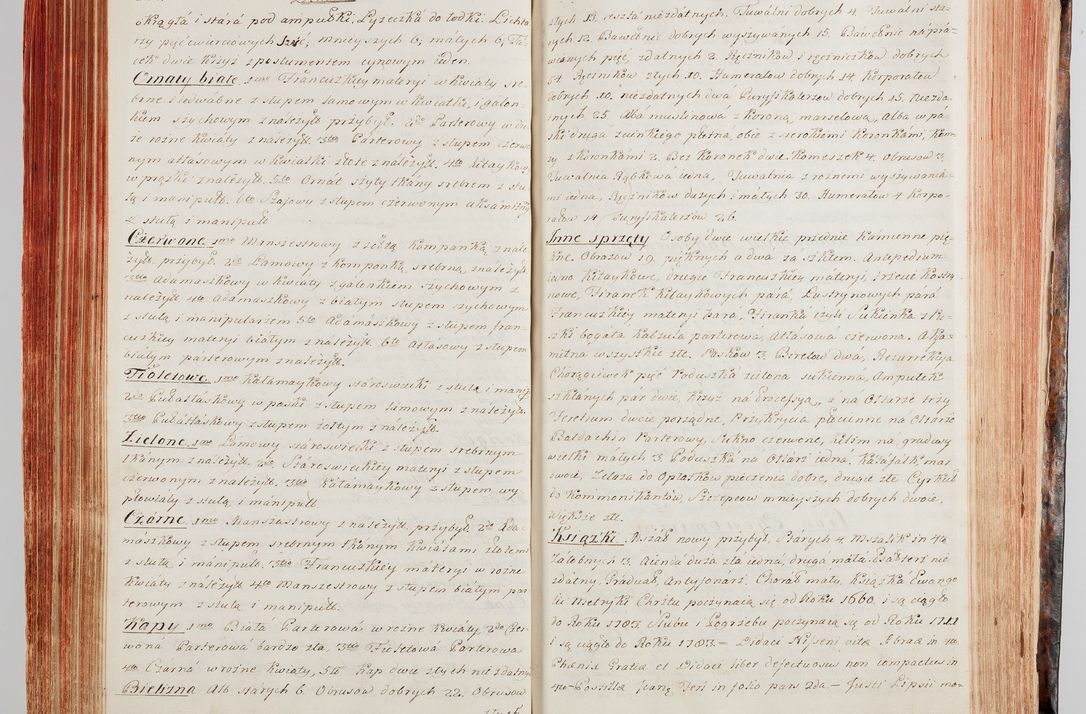 okrągła i stára pod ampułki, Łyżeczka do łodki. Lichta-
rzy pięć ćwierciowych sześć, mnieyszych 6, máłych 6, Ta-
cek dwie Krzyż z postumentem cynowym ieden.
Ornaty białe 1mo Francuskiey materyi w kwiaty sre-
brne i iedwabne z słupem lamowym w kwiatki, i galon-
kiem szychowym z należyt. przybył. 2do Parterowy w du-
że rożne kwiaty z należyt. 3tio Parterowy z słupem czerwo-
nym atłasowym w kwiatki złote z należyt. 4to kitaykowy
w prążki z należyt. 5to Ornat szyty tkány srebrem z stu-
łą i manipuł. 6to Szajowy z słupem czerwonym aksamitny
z stułą i manipuł.
Czerwone 1mo Manszestrowy z żółtą kompanką z nale-
żyt. przybył. 2do Lamowy z kompanką srebrną z należyt.
3tio Adamaszkowy w kwiaty z galonkiem szychowym z
należyt. 4to Adamaszkowy z białym słupem szychowym
z stułą i manipularzem 5to Adámaszkowy z słupem fran-
cuzkiey materyi białym z należyt. 6to Atłasowy z słupem
białym parterowym z należyt.
Fioletowe 1mo Kałamaykowy stároswiecki z stułą i manip
2do Pułatłaskowy w paski z słupem lamowym z należyt.
3tio Pułatłaskowy z słupem żołtym z należyt.
Zielone 1mo Lamowy stároswiecki z słupem srebrnym
tkánym z należyt. 2do Stároswieckiey materyi z słupem
czerwonym z należyt. 3tio Kałamaykowy z słupem wy
płowiały z stułą i mánipuł.
Czárne 1mo Manszastrowy z należyt. przybył. 2do Ada-
mászkowy z słupem srebrnym tkánym kwiatami złotemi
z stułą i mánipuł. 3tio Francuzkiey materyi w rożne
kwiáty z należyt. 4to Manszestrowy z słupem białym par
terowym z stułą i manipuł.
Kapy 1mo Białá Parterowá w rożne kwiáty, 2do Czer
woná Parterowá bardzo zła, 3tio Fioletowá Parterowa
4to Czárná w rożne kwiaty, 5to Kap dwie złych niezdatny
Bielizna Alb stárych 6. Obrusow dobrych 22. Obrusow
złych 11. reszta niezdátnych. Tuwalni dobrych 4. Tuwalni sta-
rych 12. Bawełnic dobrych wyszywanych 15. Bawełnic náprá-
wianych pięć, zdatnych 2. Ręczników i ręczniczkow dobrych
54. Ręcznikow złych 10. Humerałow dobrych 14. Korporałow
dobrych 10. niezdatnych dwá Puryfikaterzow dobrych 15. niezda-
tnych 25. Alba muślinowá z koroną marselową, álba w pa-
ski druga z cienkiego płotná, obie z szerokiemi koronkámi, kom-
ży z koronkámi 2. Bez koronek dwie. Komeszek 4. Obrusow 3.
Tuwalnia Rąbkowa iedná, Tuwalnia z rożnemi wyszywania-
mi iedna, Ręcznikow dużych i máłych 30. Humerałow 4 Korpo-
rałow 14. Puryfikaterzow 26.
Inne sprzęty Osoby dwie wielkie przednie kámienne pię-
kne. Obrazow 19. pięknych a dwa zá szkłem. Antepedium
iedno kitaykowe, drugie Francuskiey materyi, trzecie kostry-
nowe, Firanek kitaykowych párá, Lustrynowych pará
Francuskiey materyi pará, Firanka czyli Sukienka z Pu-
szki bogata kápzula parterowa, Atłasowa czerwona. Aksa-
mitna wszystkie złe. Paskow 3. Biretow dwá, Rezurekcya
Chorągiewek pięć Poduszká zielona sukienná, Ampułek
szklanych par dwie, Krzyż na Procesyą, a na Ołtarze trzy
Feretrum dwoie porządne, Przykrycia płocienne na Ołtarze
Baldachin Parterowy, Sukno czerwone, kilim ná gradusy
wielki máłych 3. Poduszká ná Ołtarz iedna, Kátáfalk mar
swoie, Zelaza do Opłatkow pieczenia dobre, drugie złe Cyrkuł
do Kommonikantow, Szczepcow mnieyszych dobrych dwoie,
większe złe.
Książki Mszał nowy przybył, Stárych 4. Mszalik in 4to
żałobnych 3. Aienda duża zła iedna, drugá małá. Psałterz nie
zdátny, Graduał, Antyfonarz, Chorał máły, Ksiązká Ewange
lii Metryki Chrztu poczynaią się od Roku 1660. i są ciągłe
do Roku 1783. Slubu i Pogrzebu poczynaią się od Roku 1721
i są ciągłe do Roku 1783 – Didaci Nyseni vita Abrae in 4to
Phaenix Gratiae et Didaci liber defectuosus non compactus in
4to – Postilla Jeanz Feri in folio pars 2da – Justi Lipsii mo-